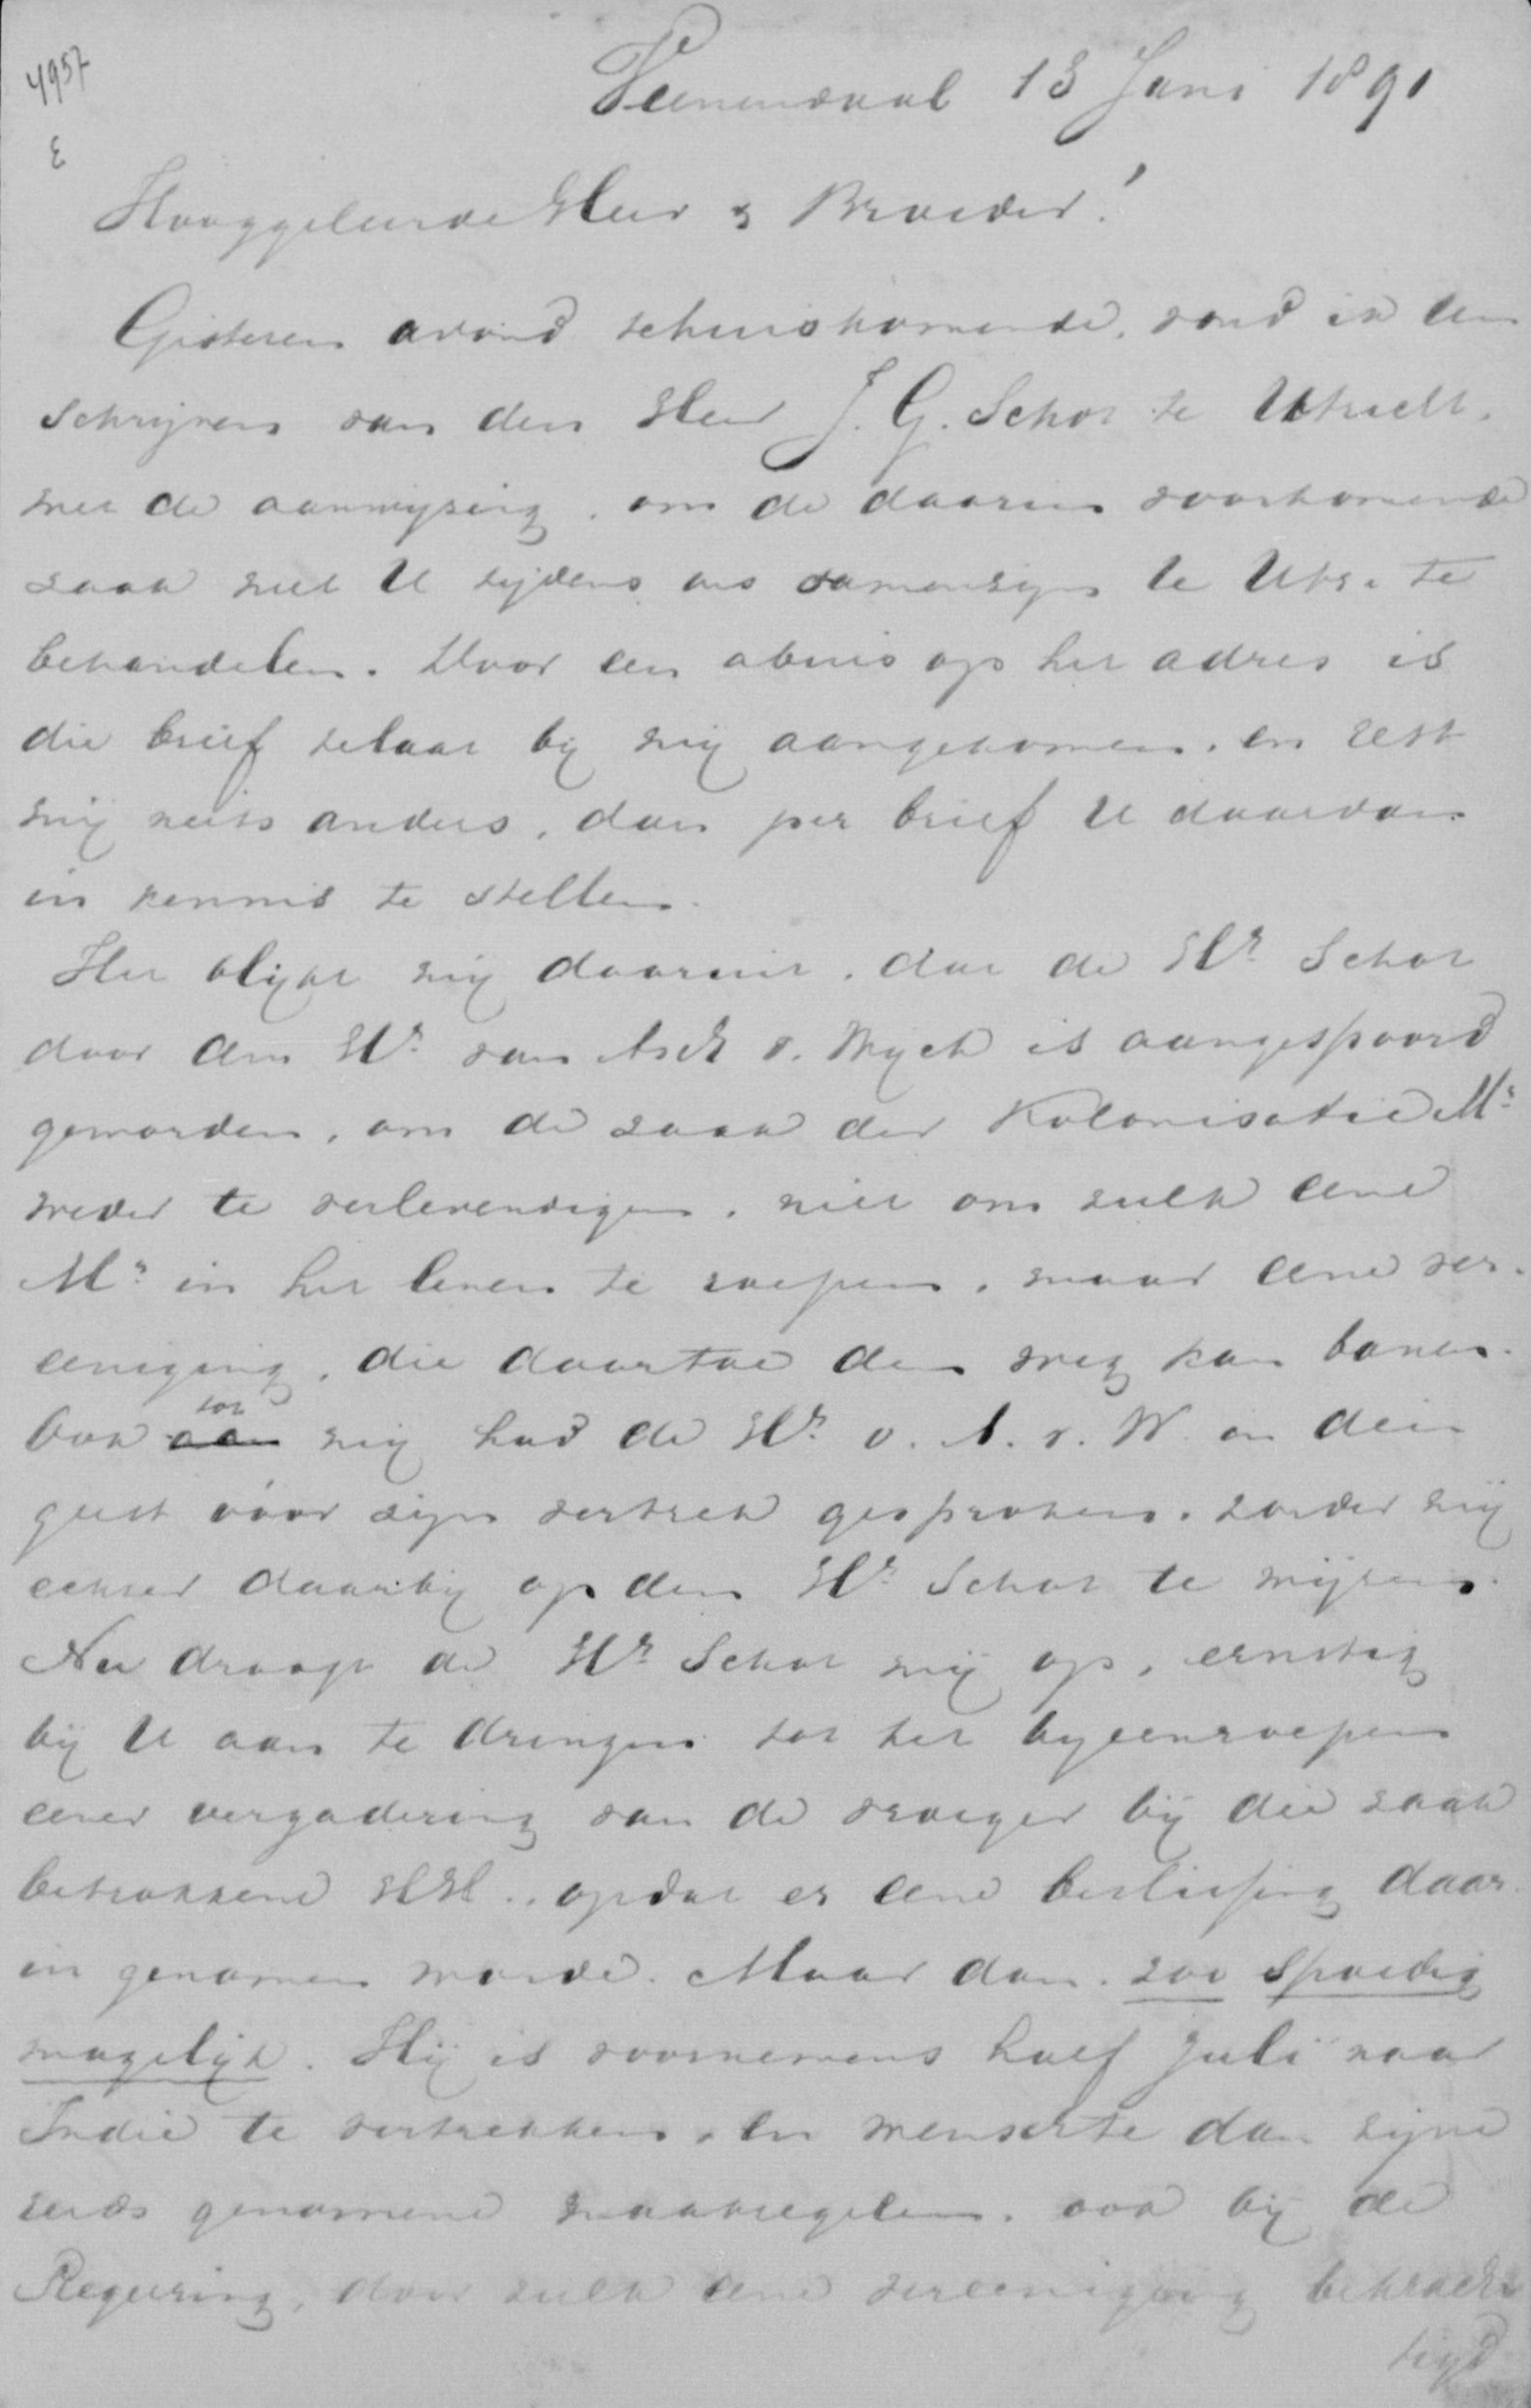 4957
E
Veenendaal 13 Juni 1891
Hooggeleerde Heer & Broeder!
Gisteren avond tehuiskomende, vond ik een
schrijven van den Heer J. G. Schot te Utrecht,
met de aanwijzing, om de daarin voorkomende
zaak met U tijdens ons samenzijn te Utr. te
behandelen. Door een abuis op het adres is
die brief te laat bij mij aangekomen, en rest
mij niets anders, dan per brief U daarvan
in kennis te stellen.
Het blijkt mij daaruit, dat de Hr Schot
door den Hr van Asch v. Wyck is aangespoord
geworden, om de zaak der Kolonisatie Mij
weder te verlevendigen, niet om zulk eene
Mij in het leven te roepen, maar eene ver-
eeniging, die daartoe den weg kan banen.
Ook aan tot mij had de Hr v. A. v. W. in dien
geest vóór zijn vertrek gesproken, zonder mij
echter daarbij op den Hr Schot te wijzen.
Nu draagt de Hr Schot mij op, ernstig
bij U aan te dringen tot het byeenroepen
eener vergadering van de vroeger bij die zaak
betrokkene HH. opdat er eene beslissing daar-
in genomen worde. Maar dan zoo spoedig
mogelijk. Hij is voornemens half Juli naar
Indie te vertrekken, en wenschte dan zijne
reeds genomene maatregelen, ook bij de
Regeering, door zulk eene vereeniging bekrach-
tigd